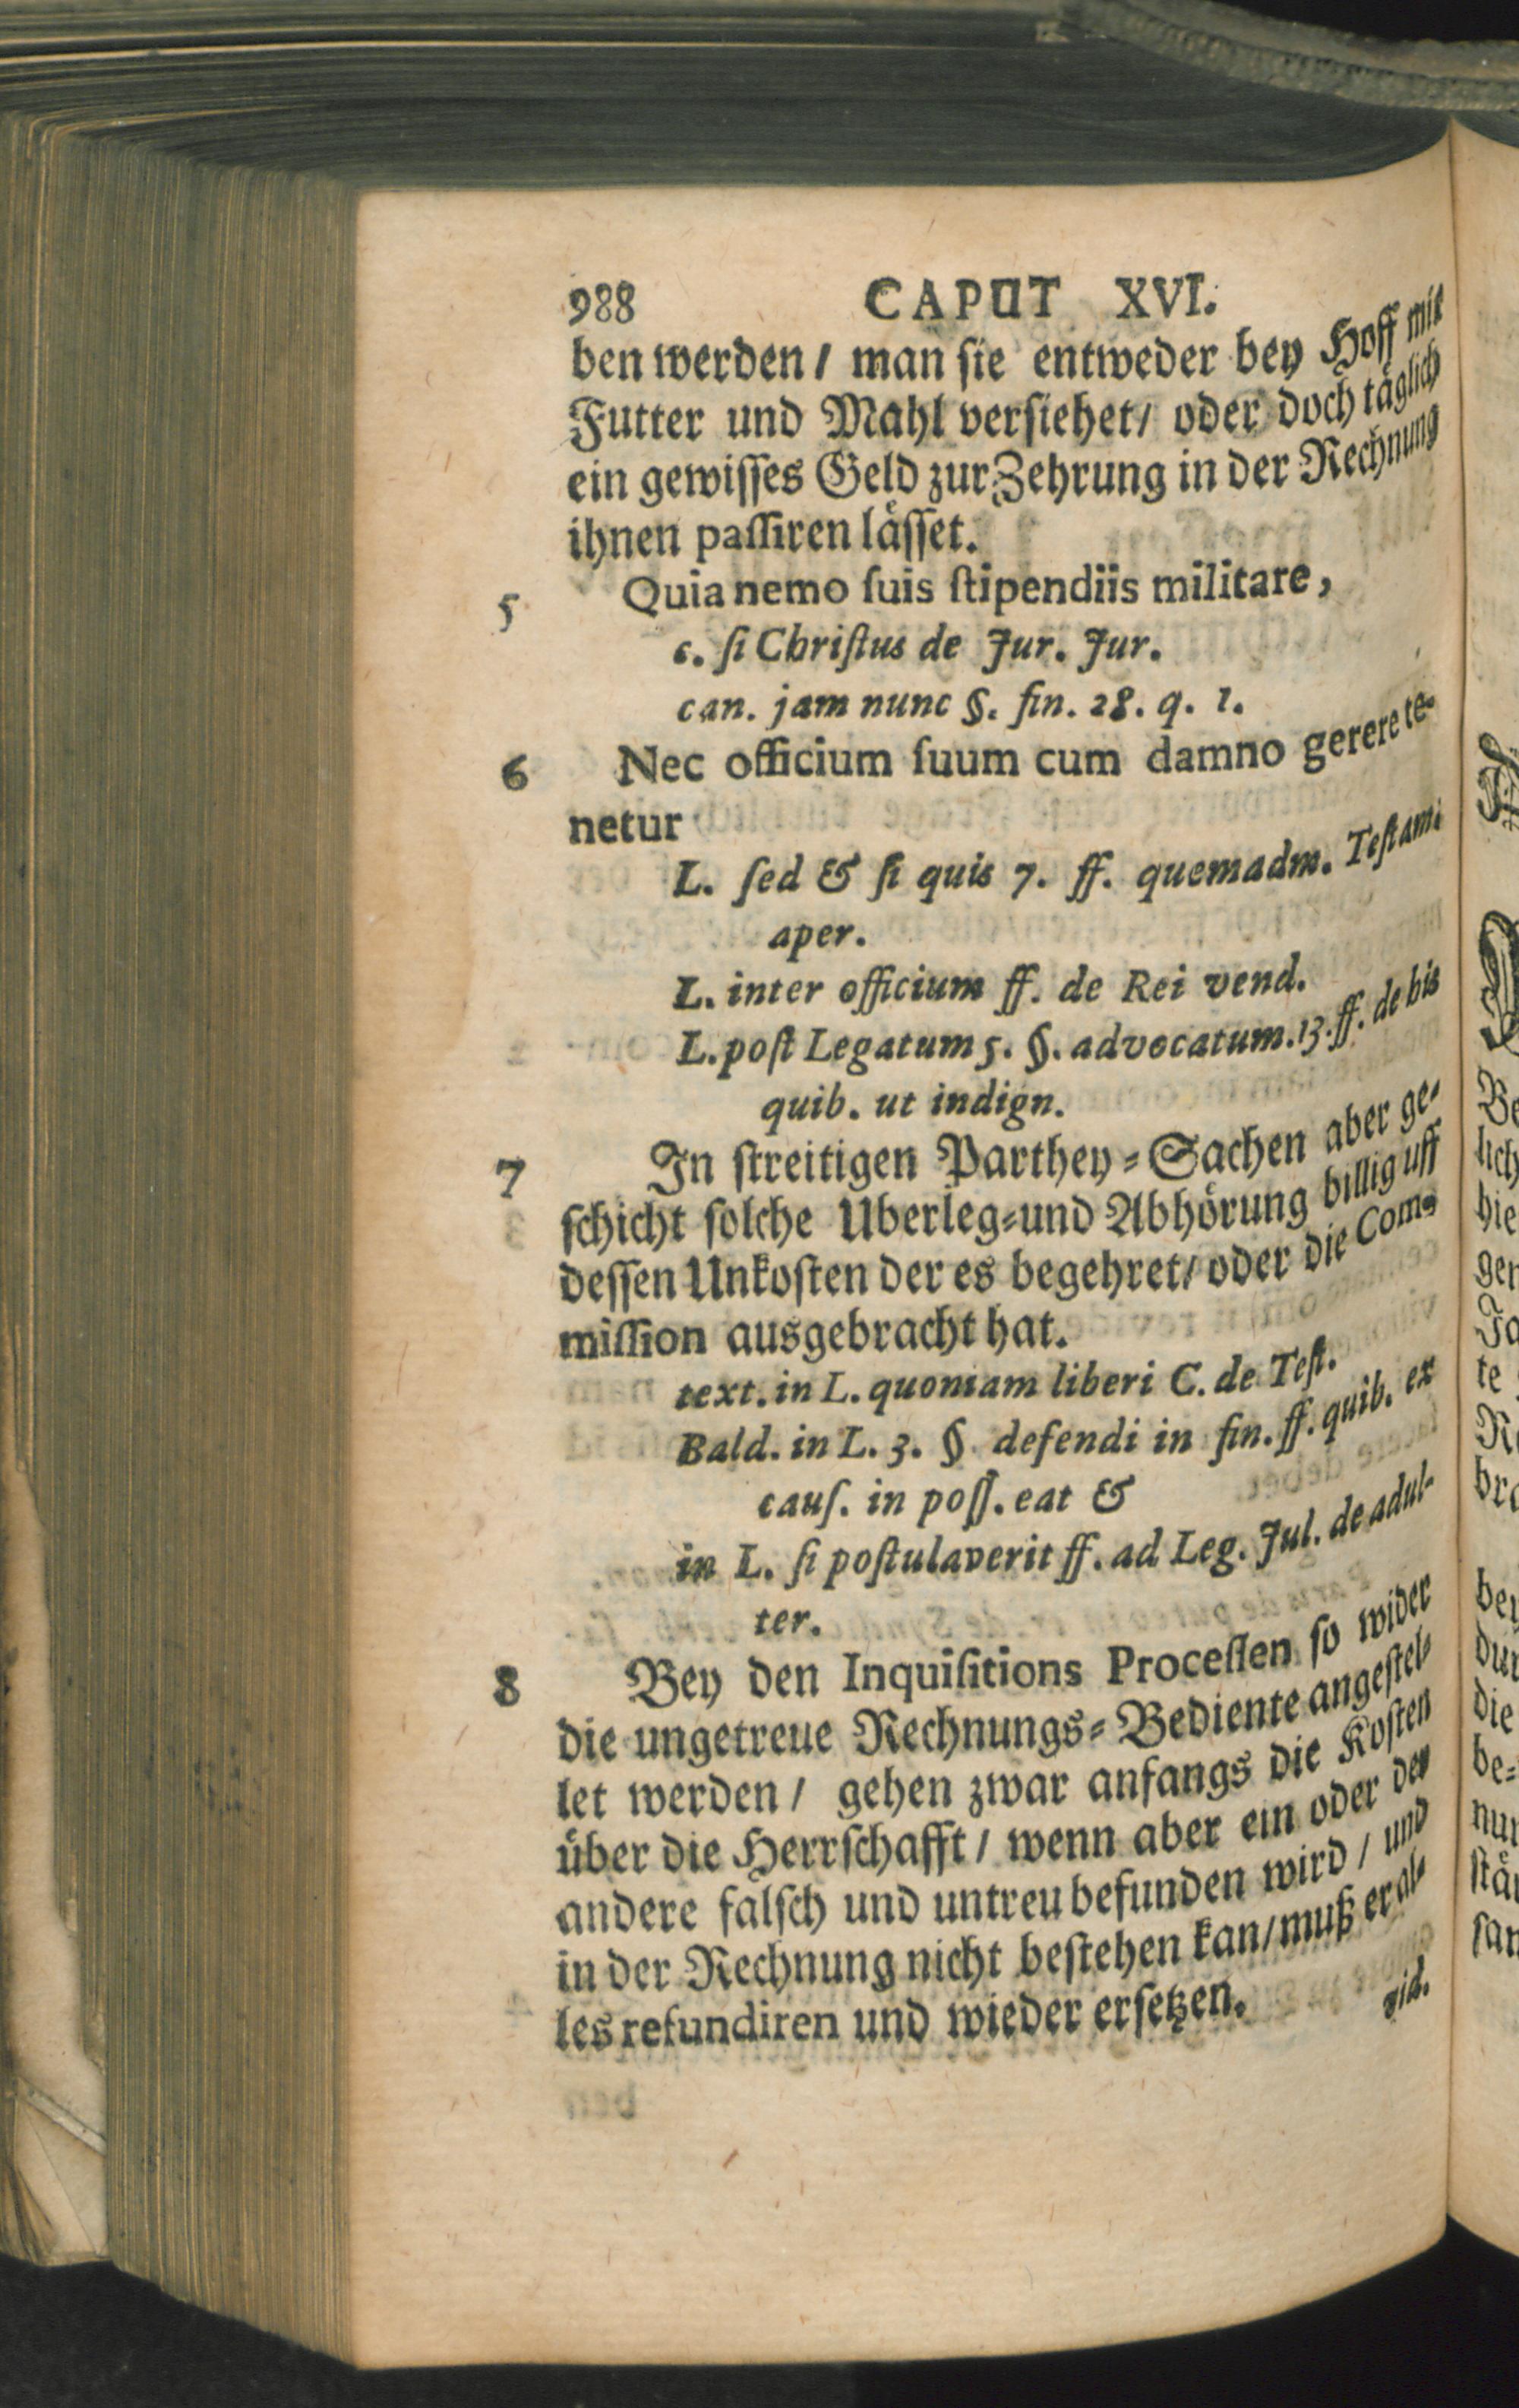 988 CAPUT XVI.
ben werden / man ſie entweder bey Hoff mit
Futter und Mahl verſiehet / oder doch täglich
ein gewiſſes Geld zur Zehrung in der Rechnung
ihnen paſſiren läſſet.
5 Quia nemo ſuis ſtipendiis militare,
c. ſi Chriſtus de Jur. Jur.
can. jam nunc §. fin. 28. q. 1.
6 Nec officium ſuum cum damno gerere te-
netur
L. ſed & ſi quis 7. ff. quemadm. Teſtam.
aper.
L. inter officium ff. de Rei vend.
L. poſt Legatum 5. §. advocatum. 13. ff. de his
quib. ut indign.
7 In ſtreitigen Parthey-Sachen aber ge-
ſchicht ſolche Uberleg-und Abhörung billig uff
deſſen Unkoſten der es begehret / oder die Com-
miſſion ausgebracht hat.
text. in L. quoniam liberi C. de Teſt.
Bald. in L. 3. § defendi in fin. ff. quib. ex
cauſ. in poſſ. eat &
in L. ſi poſtulaverit ff. ad Leg. Jul. de adul-
ter.
8 Bey den Inquiſitions Proceſſen ſo wider
die ungetreue Rechnungs-Bediente angeſtel-
let werden / gehen zwar anfangs die Koſten
über die Herrſchafft / wenn aber ein oder der
andere falſch und untreu befunden wird / und
in der Rechnung nicht beſtehen kan / muß er al-
les refundiren und wieder erſetzen.
vid.